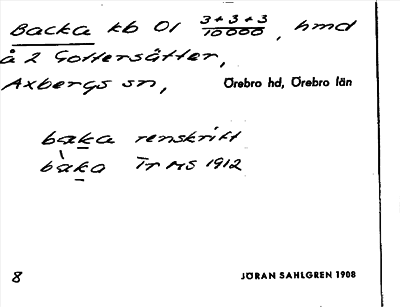 Backa kb Öl 3+3+3/10000, hmd
å 2 Gottersätter,
Axbergs sn, Örebro hd, Örebro län
baka renskrift
bàka Tr MS 1912
8 JÖRAN SAHLGREN 1908